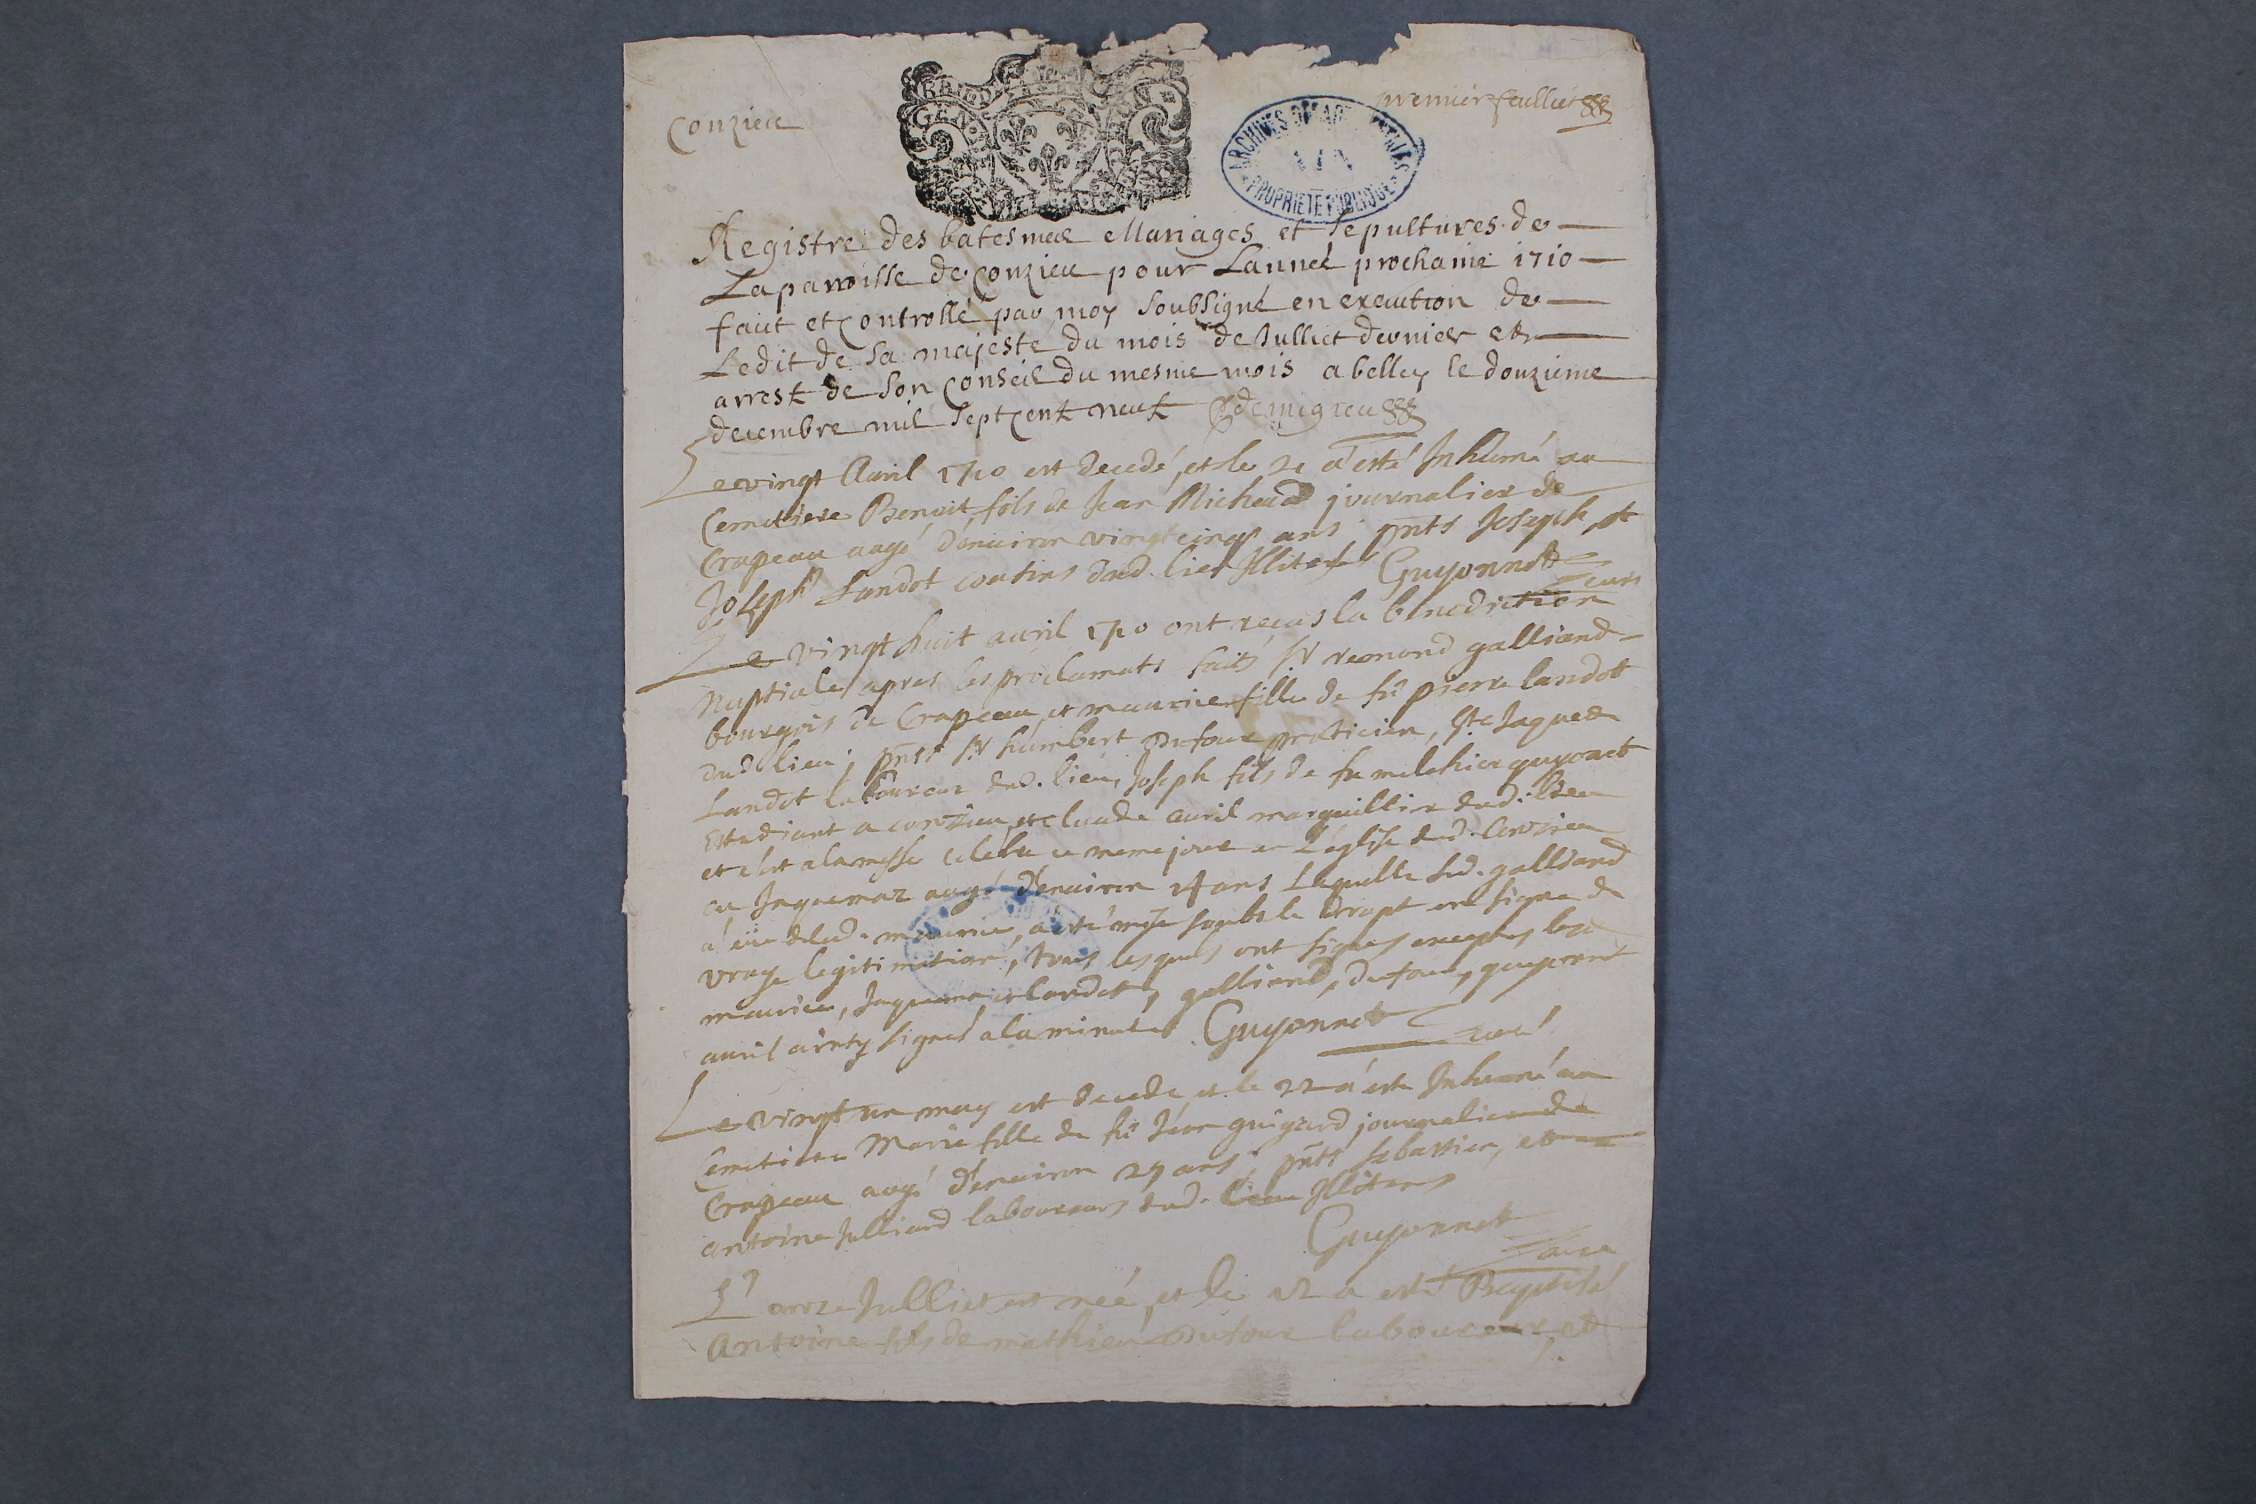 Conzieu
premier feulliet
ARCHIVES DEPARTEMENTALES
AIN
PROPRIETE PUBLIQUE
GEN
Registre des batesmes Mariages et sepultures de
La parroisse de Conzieu pour Lannée prochaine 1710
faict et controllé par moy soubsigné en execution de
Ledit de sa majesté du mois de Julliet dernier et
arrest de son Conseil du mesme mois a belley le douzieme
decembre mil sept cent neuf Demigieu
Le vingt Auril 1710 est decedé, et le 21 a esté Inhumé au
Cemetiere Benoit fils de Jean Michaud journalier de
Crapeau aagé d'enuiron vingt cinq ans, pnts Joseph, et
Joseph Landot cousins dud. lieu Illiterés Guyonnet
curé
Le vingt huit auril 1710 ont reçus la benediction
Nuptiale apres les proclamats faits Sr remond galliand
bourgois de Crapeau, et maurice fille de fû pierre landot
dud lieu, pnts Sr humbert Dufour praticien, Sr Jaques
Landot laboureur dud. lieu, Joseph fils de fu melchior guyonet
Estudiant a conzieu, et claude auril marguillier dud. lieu
et c'est a la messe celebré ce meme jour en l'église dud. Conzieu
Jaquemaz aagé d'enuiron 14 ans Laquelle led. galliand
a eüe de lad. maurice, a esté mise soubs le drapt en signe de
vraye legitimation, tous lesquels ont signés exceptes lesd
maurice, Jaquema et landot, galliand, dufour, guyonnet
auril ainsy signes a la minute Guyonnet
curé
Le vingt un may est decedé, et le 22 a esté Inhumé au
Cemetiere Marie fille de fû Jean guigard journalier de
Crapeau aagé d'enuiron 27 ans, pnts sebastien, et
antoine Julliard laboureurs dud. lieu Illiterés
Guyonnet
curé
L'onze Julliet est née, et le 12 a esté Baptisé
Antoine fils de mathieu Dufour laboureur, et